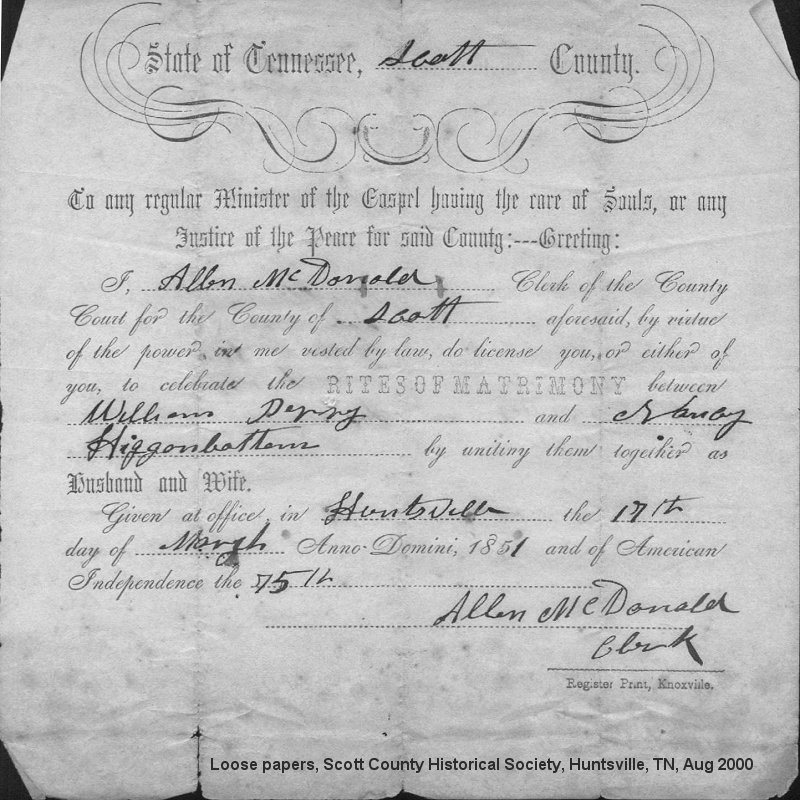 State of Tennessee, Scott County.
To any regular Minister of the Gospel having the care of Souls, or any
Justice of the Peace for said County:---Greeting:
I, Allen McDonald Clerk of the County
Court for the County of Scott aforesaid, by virtue
of the power in me vested by law, do license you, or either of
you, to celebrate the RITES OF MATRIMONY between
William Perry and Nancy
Higgonbottom by uniting them together as
Husband and Wife.
Given at office, in Huntsville the 17th
day of March Anno-Domini, 1851 and of American
Independence the 75th
Allen McDonald
Clerk
Register Print, Knoxville.
Loose papers, Scott County Historical Society, Huntsville, TN, Aug 2000